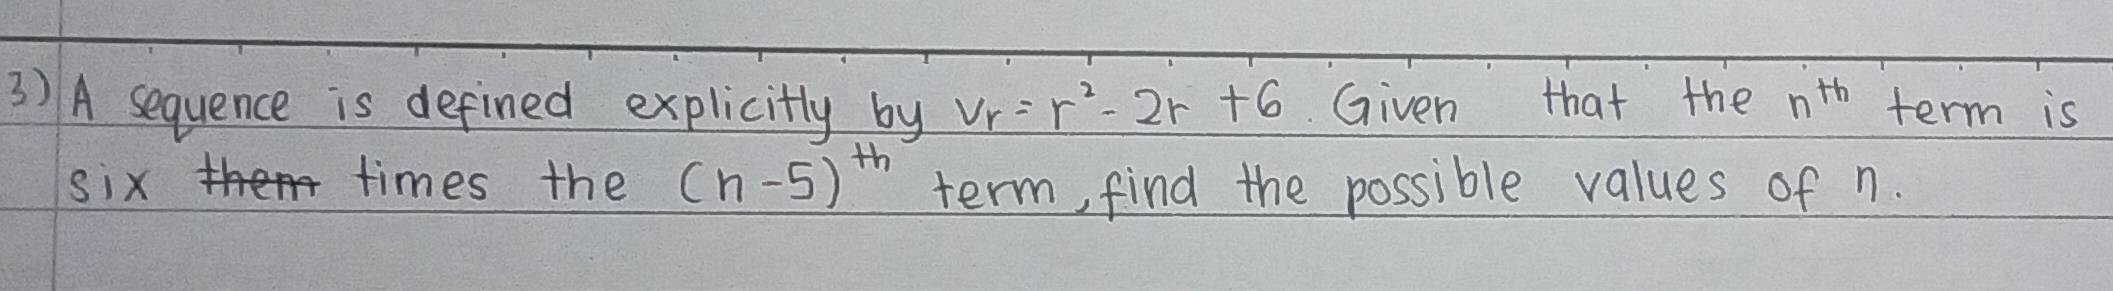 3) A sequence is defined explicitly by Vr = r² - 2r + 6. Given that the nth term is
six them times the (n-5)th term, find the possible values of n.